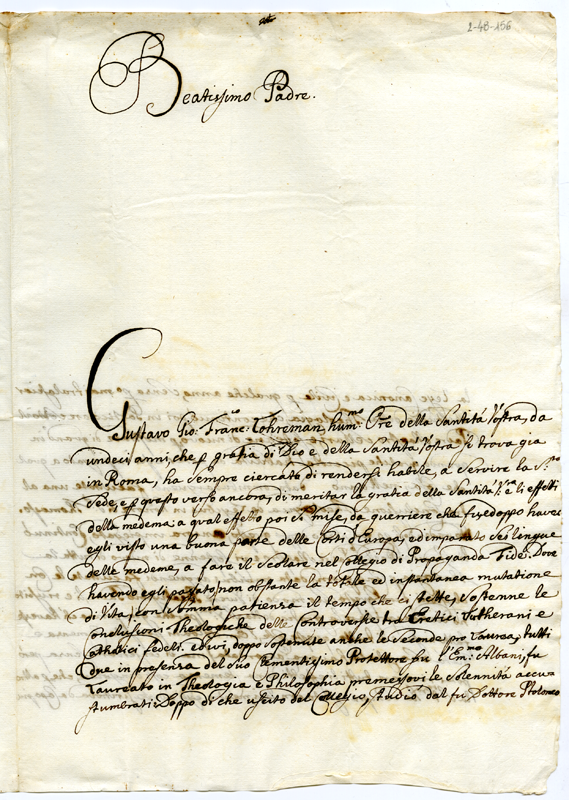 2-48-156
Beatissimo Padre.
Gustavo Gio: Franc:co Tohreman, hum:mo Ore della Santità Vostra, da
undeci anni, che p gratia di Dio e della Santità Vostra si trova gia
in Roma, ha sempre ciercato di rendersi habile, a servire la S:ta
Sede, e p questo verso ancora, di meritar la gratia della Santità V:ra e li effetti
della medema: a qual effetto poi si mise, da guerriere che fu, e doppo haver
egli visto una buona parte delle Corti d'Europa, ed imparato sei lingue
delle medeme, a fare il Scolare nel Collegio di Propaganda Fide: Dove
havendo egli passato, non obstante la totale ed instantanea mutatione
di Vita, con somma patienza il tempo che ci stette, sostenne le
Conclusioni Theologiche delle Controversie tra Eretici Lutherani e
Cathalici fedeli. ed ivi, doppo sostenute anche le Seconde pro Laurea, tutti
Due in presenza del Suo Clementissimo Protettore fu l'Em:mo Albani, fu
Laureato in Theologia e Philosophia premessovi le solennità accu-
stumbrati: Doppo di che uscito del Collegio, studiò dal fu Dottore Ptolomeo